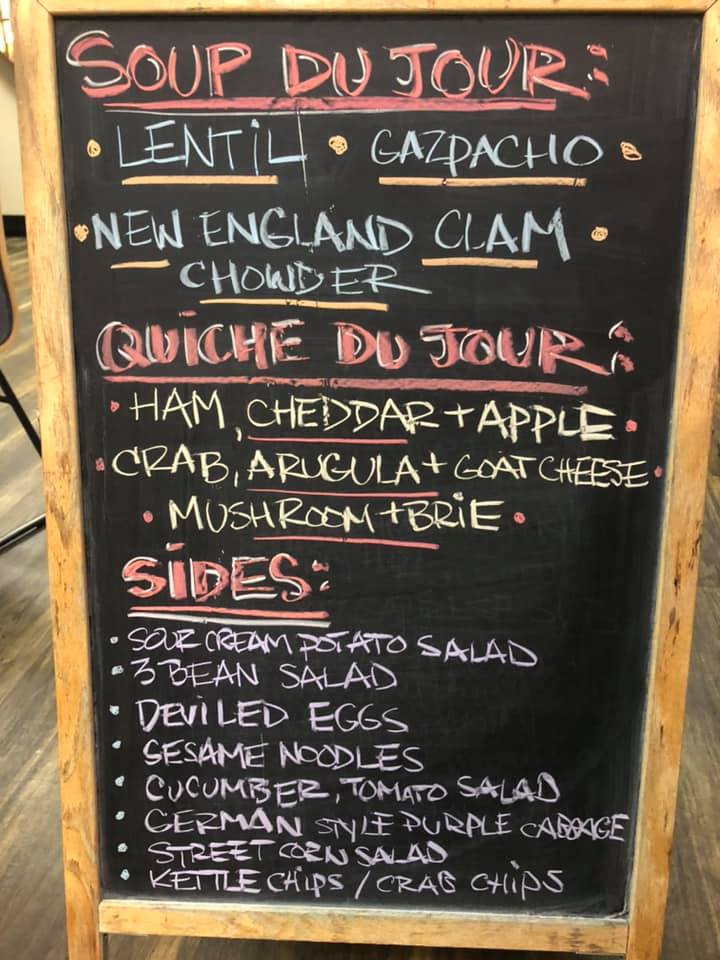 SOUP DU JOUR:
• LENTIL • GAZPACHO •
• NEW ENGLAND CLAM •
CHOWDER
QUICHE DU JOUR:
• HAM, CHEDDAR + APPLE •
• CRAB, ARUGULA + GOAT CHEESE •
• MUSHROOM + BRIE •
SIDES:
• SOUR CREAM POTATO SALAD
• 3 BEAN SALAD
• DEVILED EGGS
• SESAME NOODLES
• CUCUMBER, TOMATO SALAD
• GERMAN STYLE PURPLE CABBAGE
• STREET CORN SALAD
• KETTLE CHIPS / CRAB CHIPS